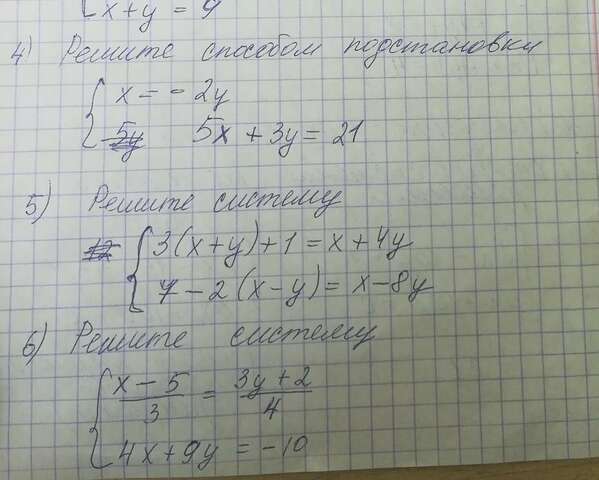 x + y = 9
4) Решите способом подстановки
x = - 2y
5x + 3y = 21
5) Решите систему
3(x + y) + 1 = x + 4y
7 - 2(x - y) = x - 8y
6) Решите систему
x - 5 / 3 = 3y + 2 / 4
4x + 9y = -10